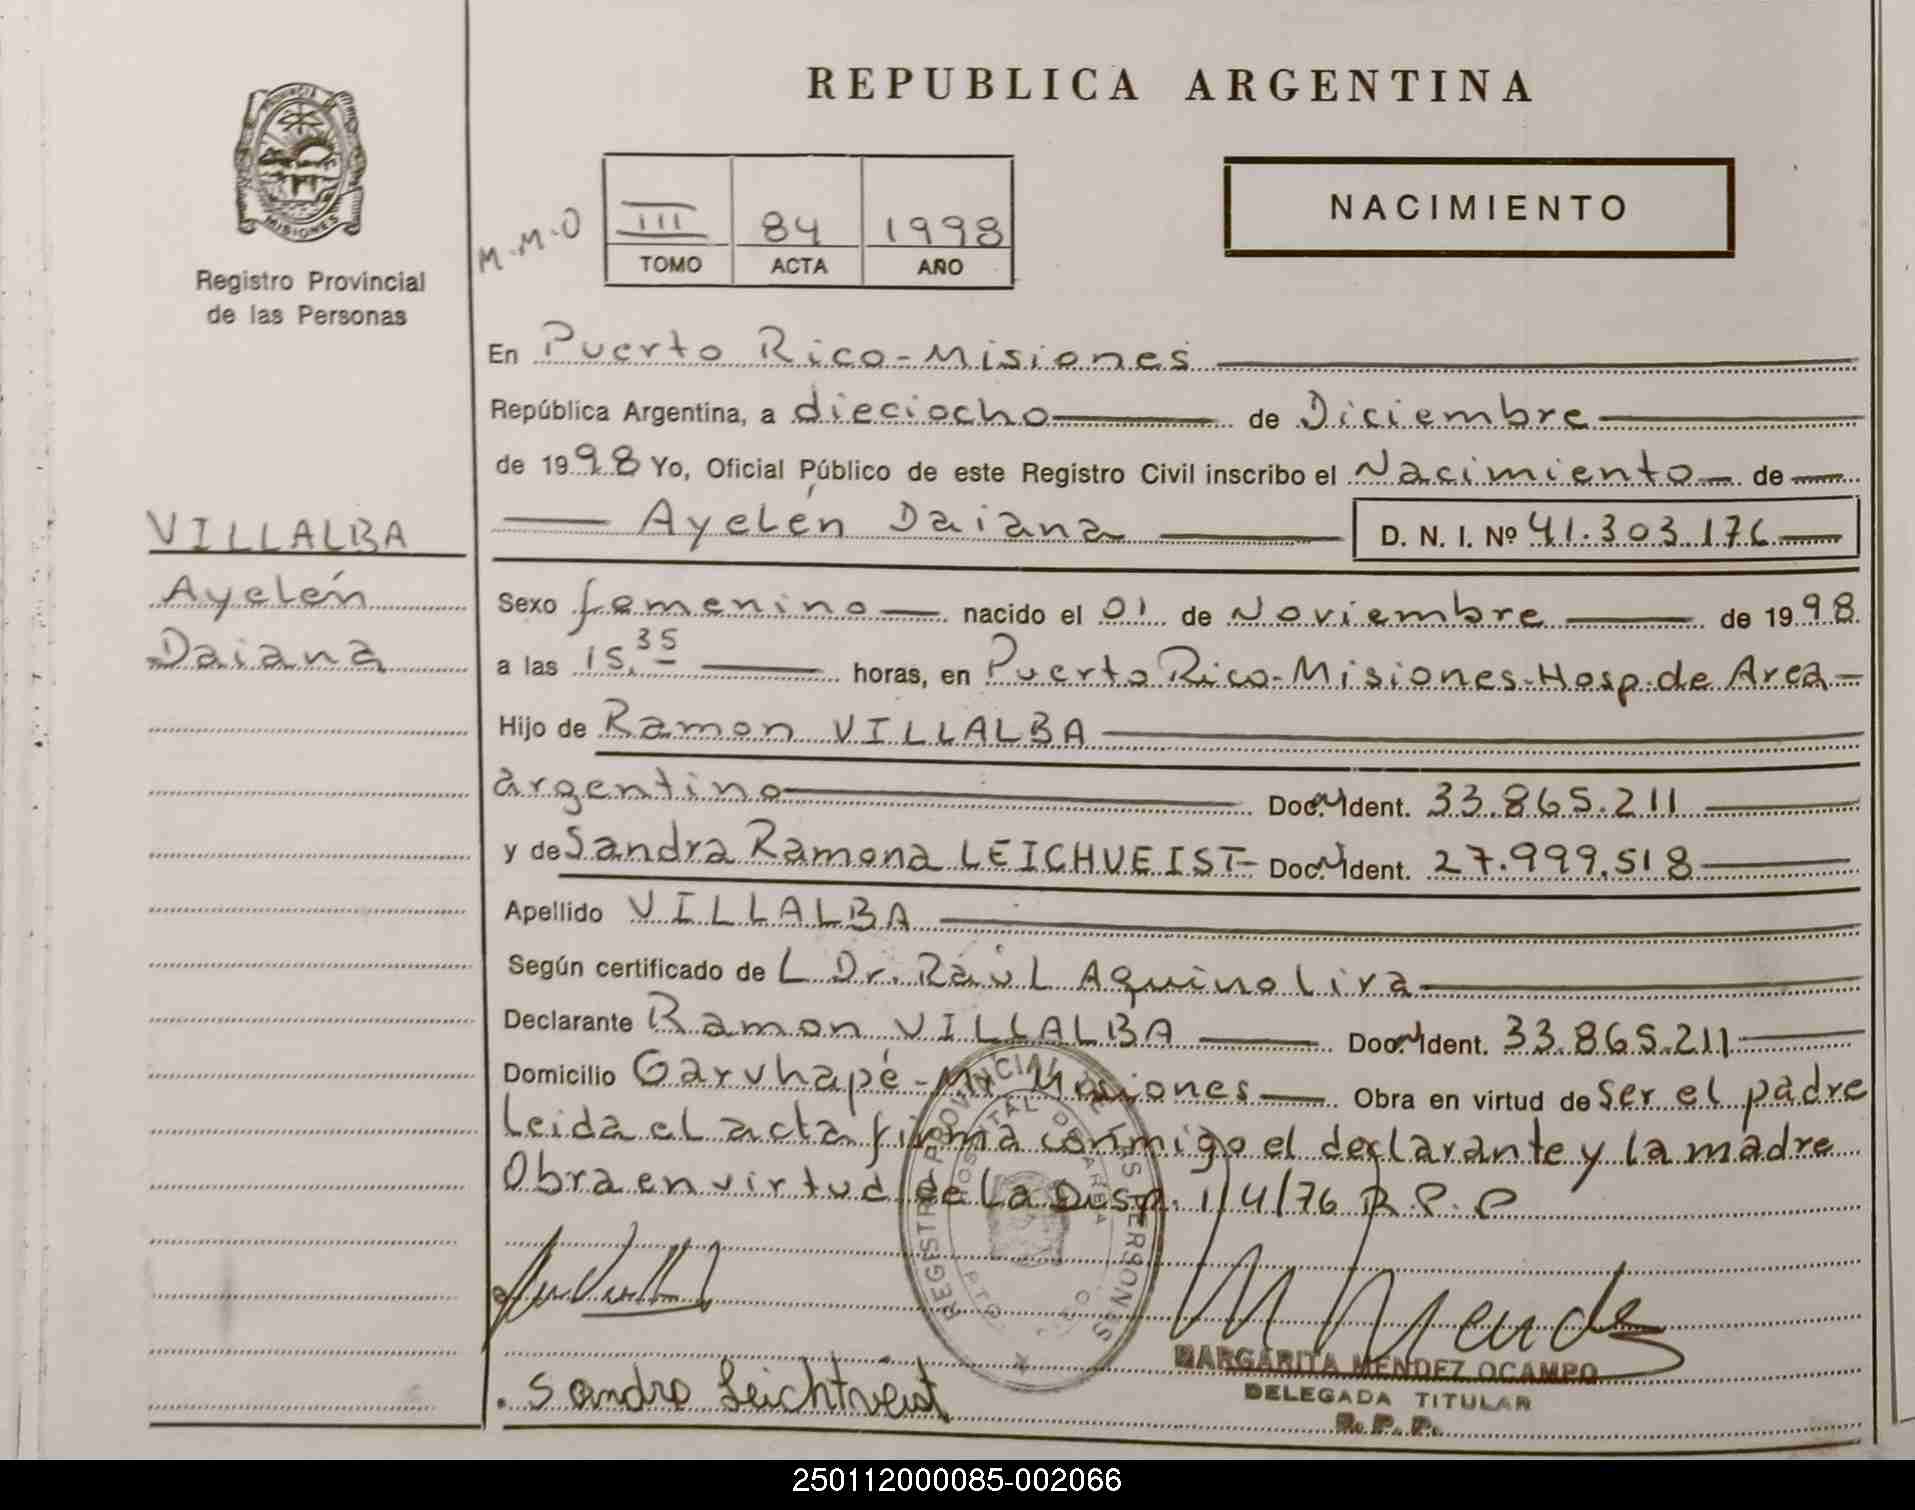 REPUBLICA ARGENTINA
PROVINCIA
MISIONES
Registro Provincial
de las Personas
M.M.O
III 84 1998
TOMO ACTA AÑO
NACIMIENTO
En Puerto Rico-Misiones
República Argentina, a dieciocho de Diciembre
de 1998 Yo, Oficial Público de este Registro Civil inscribo el Nacimiento de
Ayelén Daiana D. N. I. Nº 41.303.176
VILLALBA
Ayelén
Daiana
Sexo femenino nacido el 01 de Noviembre de 1998
a las 15.35 horas, en Puerto Rico-Misiones-Hosp.de Area
Hijo de Ramon VILLALBA
argentino Doc. Ident. 33.865.211
y de Sandra Ramona LEICHVEIST Doc. Ident. 27.999.518
Apellido VILLALBA
Según certificado de L Dr. Raúl Aquino Lira
Declarante Ramon VILLALBA Doc. Ident. 33.865.211
Domicilio Garuhapé-Mí Misiones Obra en virtud de ser el padre
Leida el acta firma conmigo el declarante y la madre
Obra en virtud de La Disp. 114/76 R.P.P
REGISTRO PROVINCIAL DE LAS PERSONAS
HOSPITAL DE AREA
PTO.
M Mendez
MARGARITA MENDEZ OCAMPO
DELEGADA TITULAR
R. P. P.
Sandra Leichtveist
250112000085-002066